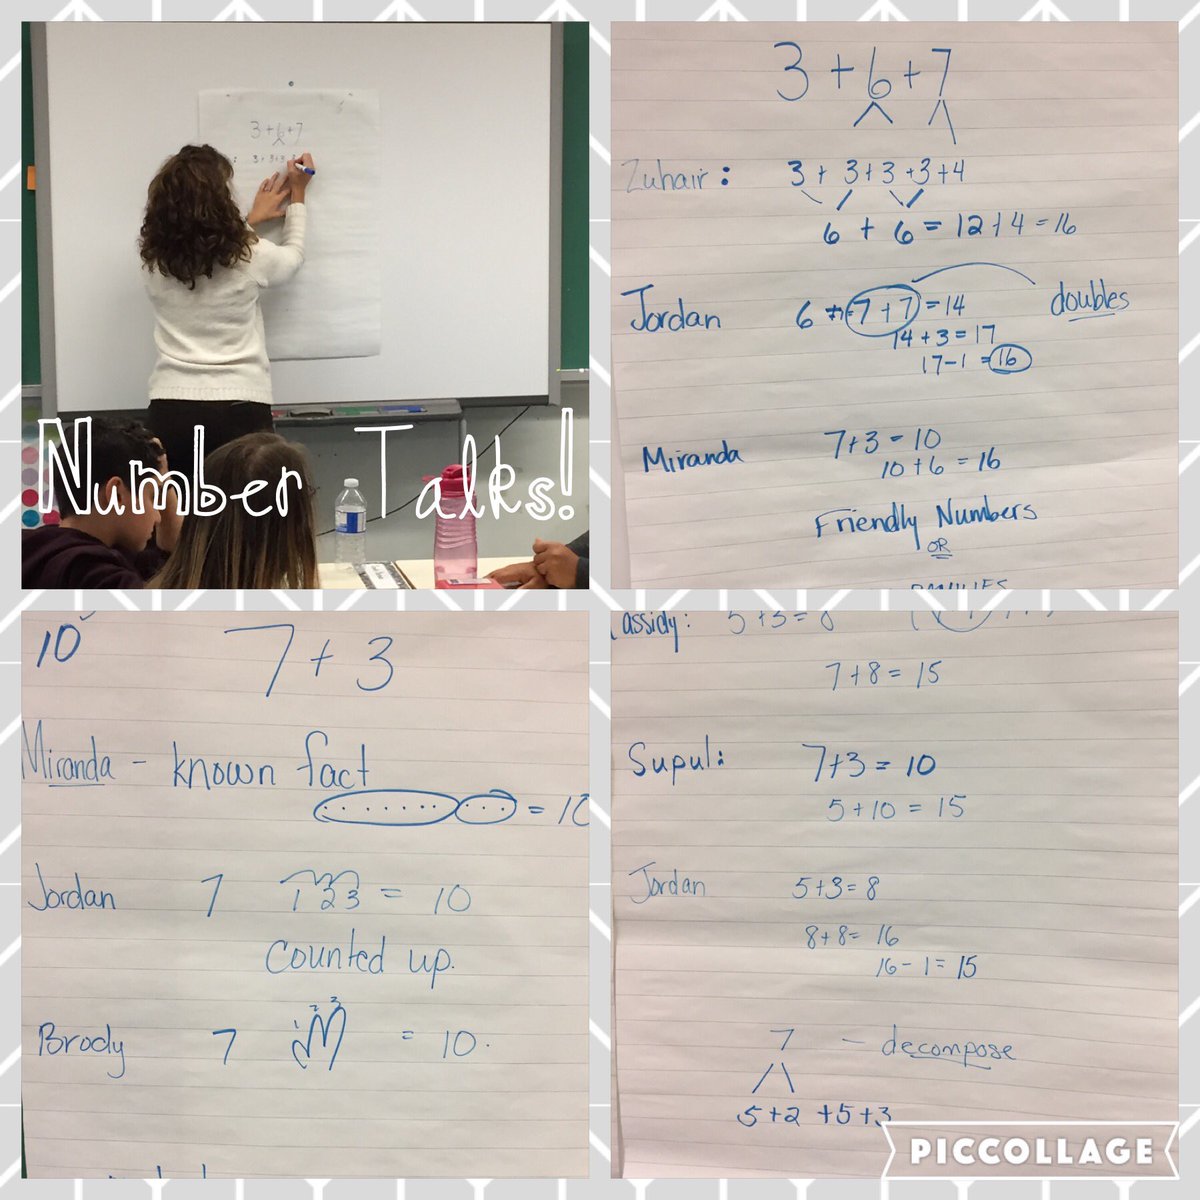 3 + 6 + 7
3 + 3 + 3
Number Talks!
3 + 6 + 7
Zuhair: 3 + 3 + 3 + 3 + 4
6 + 6 = 12 + 4 = 16
Jordan 6 7 + 7 = 14 doubles
14 + 3 = 17
17 - 1 = 16
Miranda 7 + 3 = 10
10 + 6 = 16
Friendly Numbers
OR
10 7 + 3
Miranda - known fact
= 10
Jordan 7 1 2 3 = 10
counted up.
Brody 7 1 2 3 = 10.
assidy: 5 + 3 = 8
7 + 8 = 15
Supul: 7 + 3 = 10
5 + 10 = 15
Jordan 5 + 3 = 8
8 + 8 = 16
16 - 1 = 15
7 - decompose
5 + 2 + 5 + 3
PICCOLLAGE